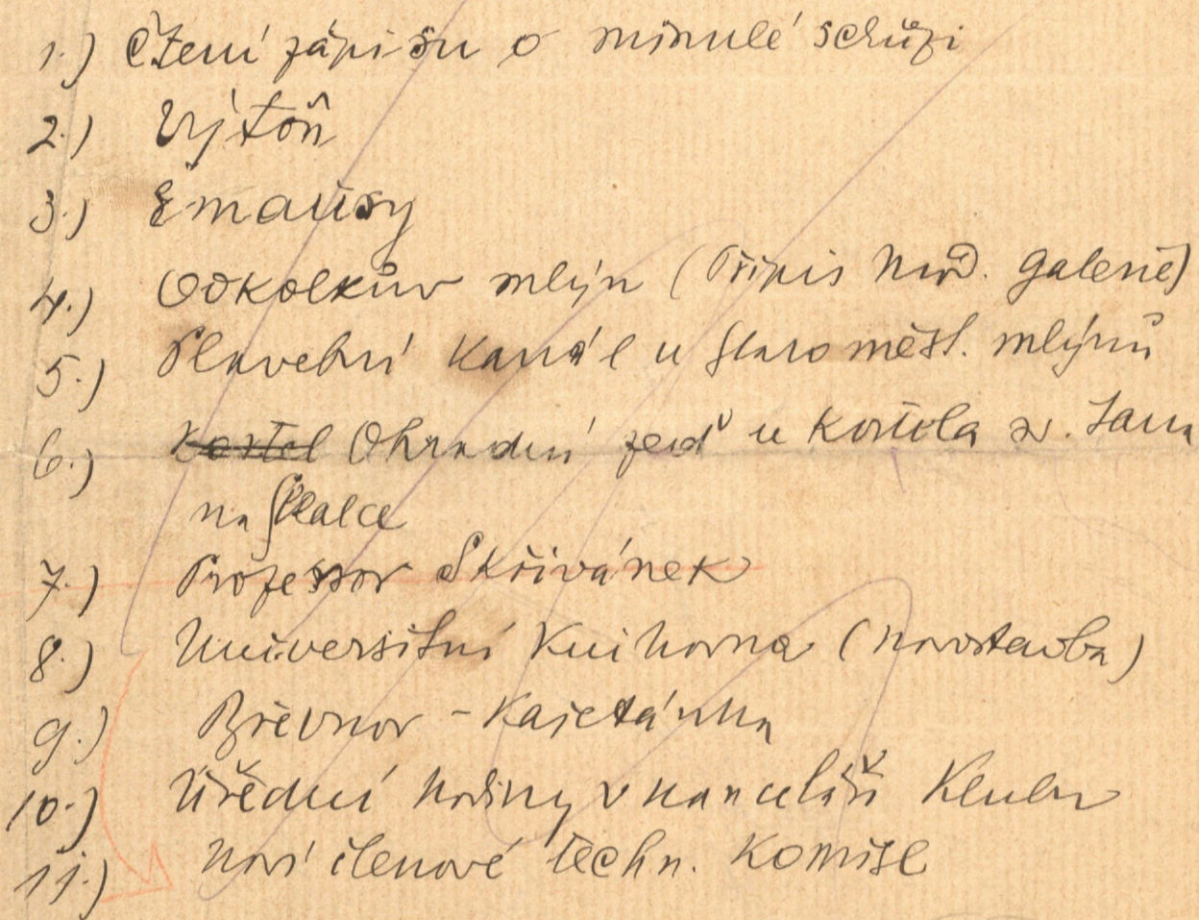 1.) Čtení zápisu o minulé schůzi
2.) Výtoň
3.) Emausy
4.) Odkolkův mlýn (Přípis Nár. galerie)
5.) Plavební kanál u Staroměst. mlýnů
6.) Kostel Ohradní zeď u kostela sv. Jana
na Skalce
7.) Professor Skřivánek
8.) Universitní knihovna (novostavba)
9.) Břevnov - Kajetánka
10.) Úřední hodiny v kanceláři Klubu
11.) Noví členové techn. komise